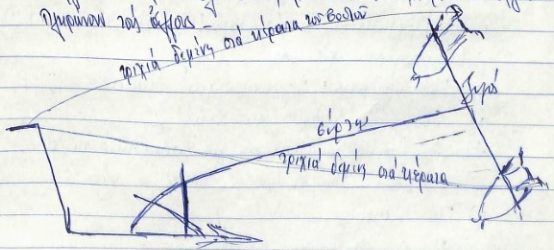 πληρώνουν τούς άλλους -
τριχιά δεμένη στά κέρατα του βοδιού
ζυγό
σύρτης
τριχιά δεμένη στά κέρατα